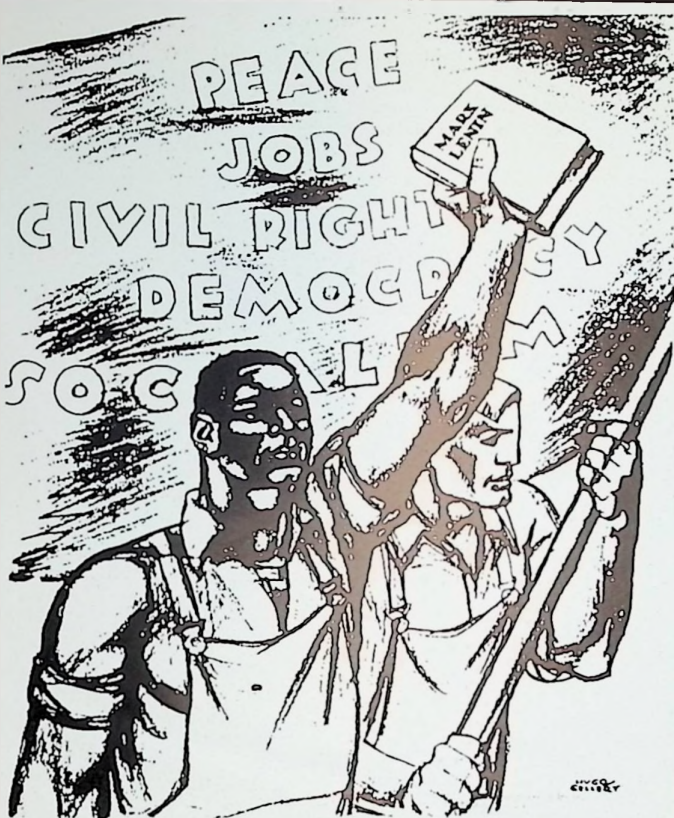 PEACE
JOBS
CIVIL RIGHT
DEMOCRCY
SOCALM
MARX
LENIN
HUGO
GELLERT